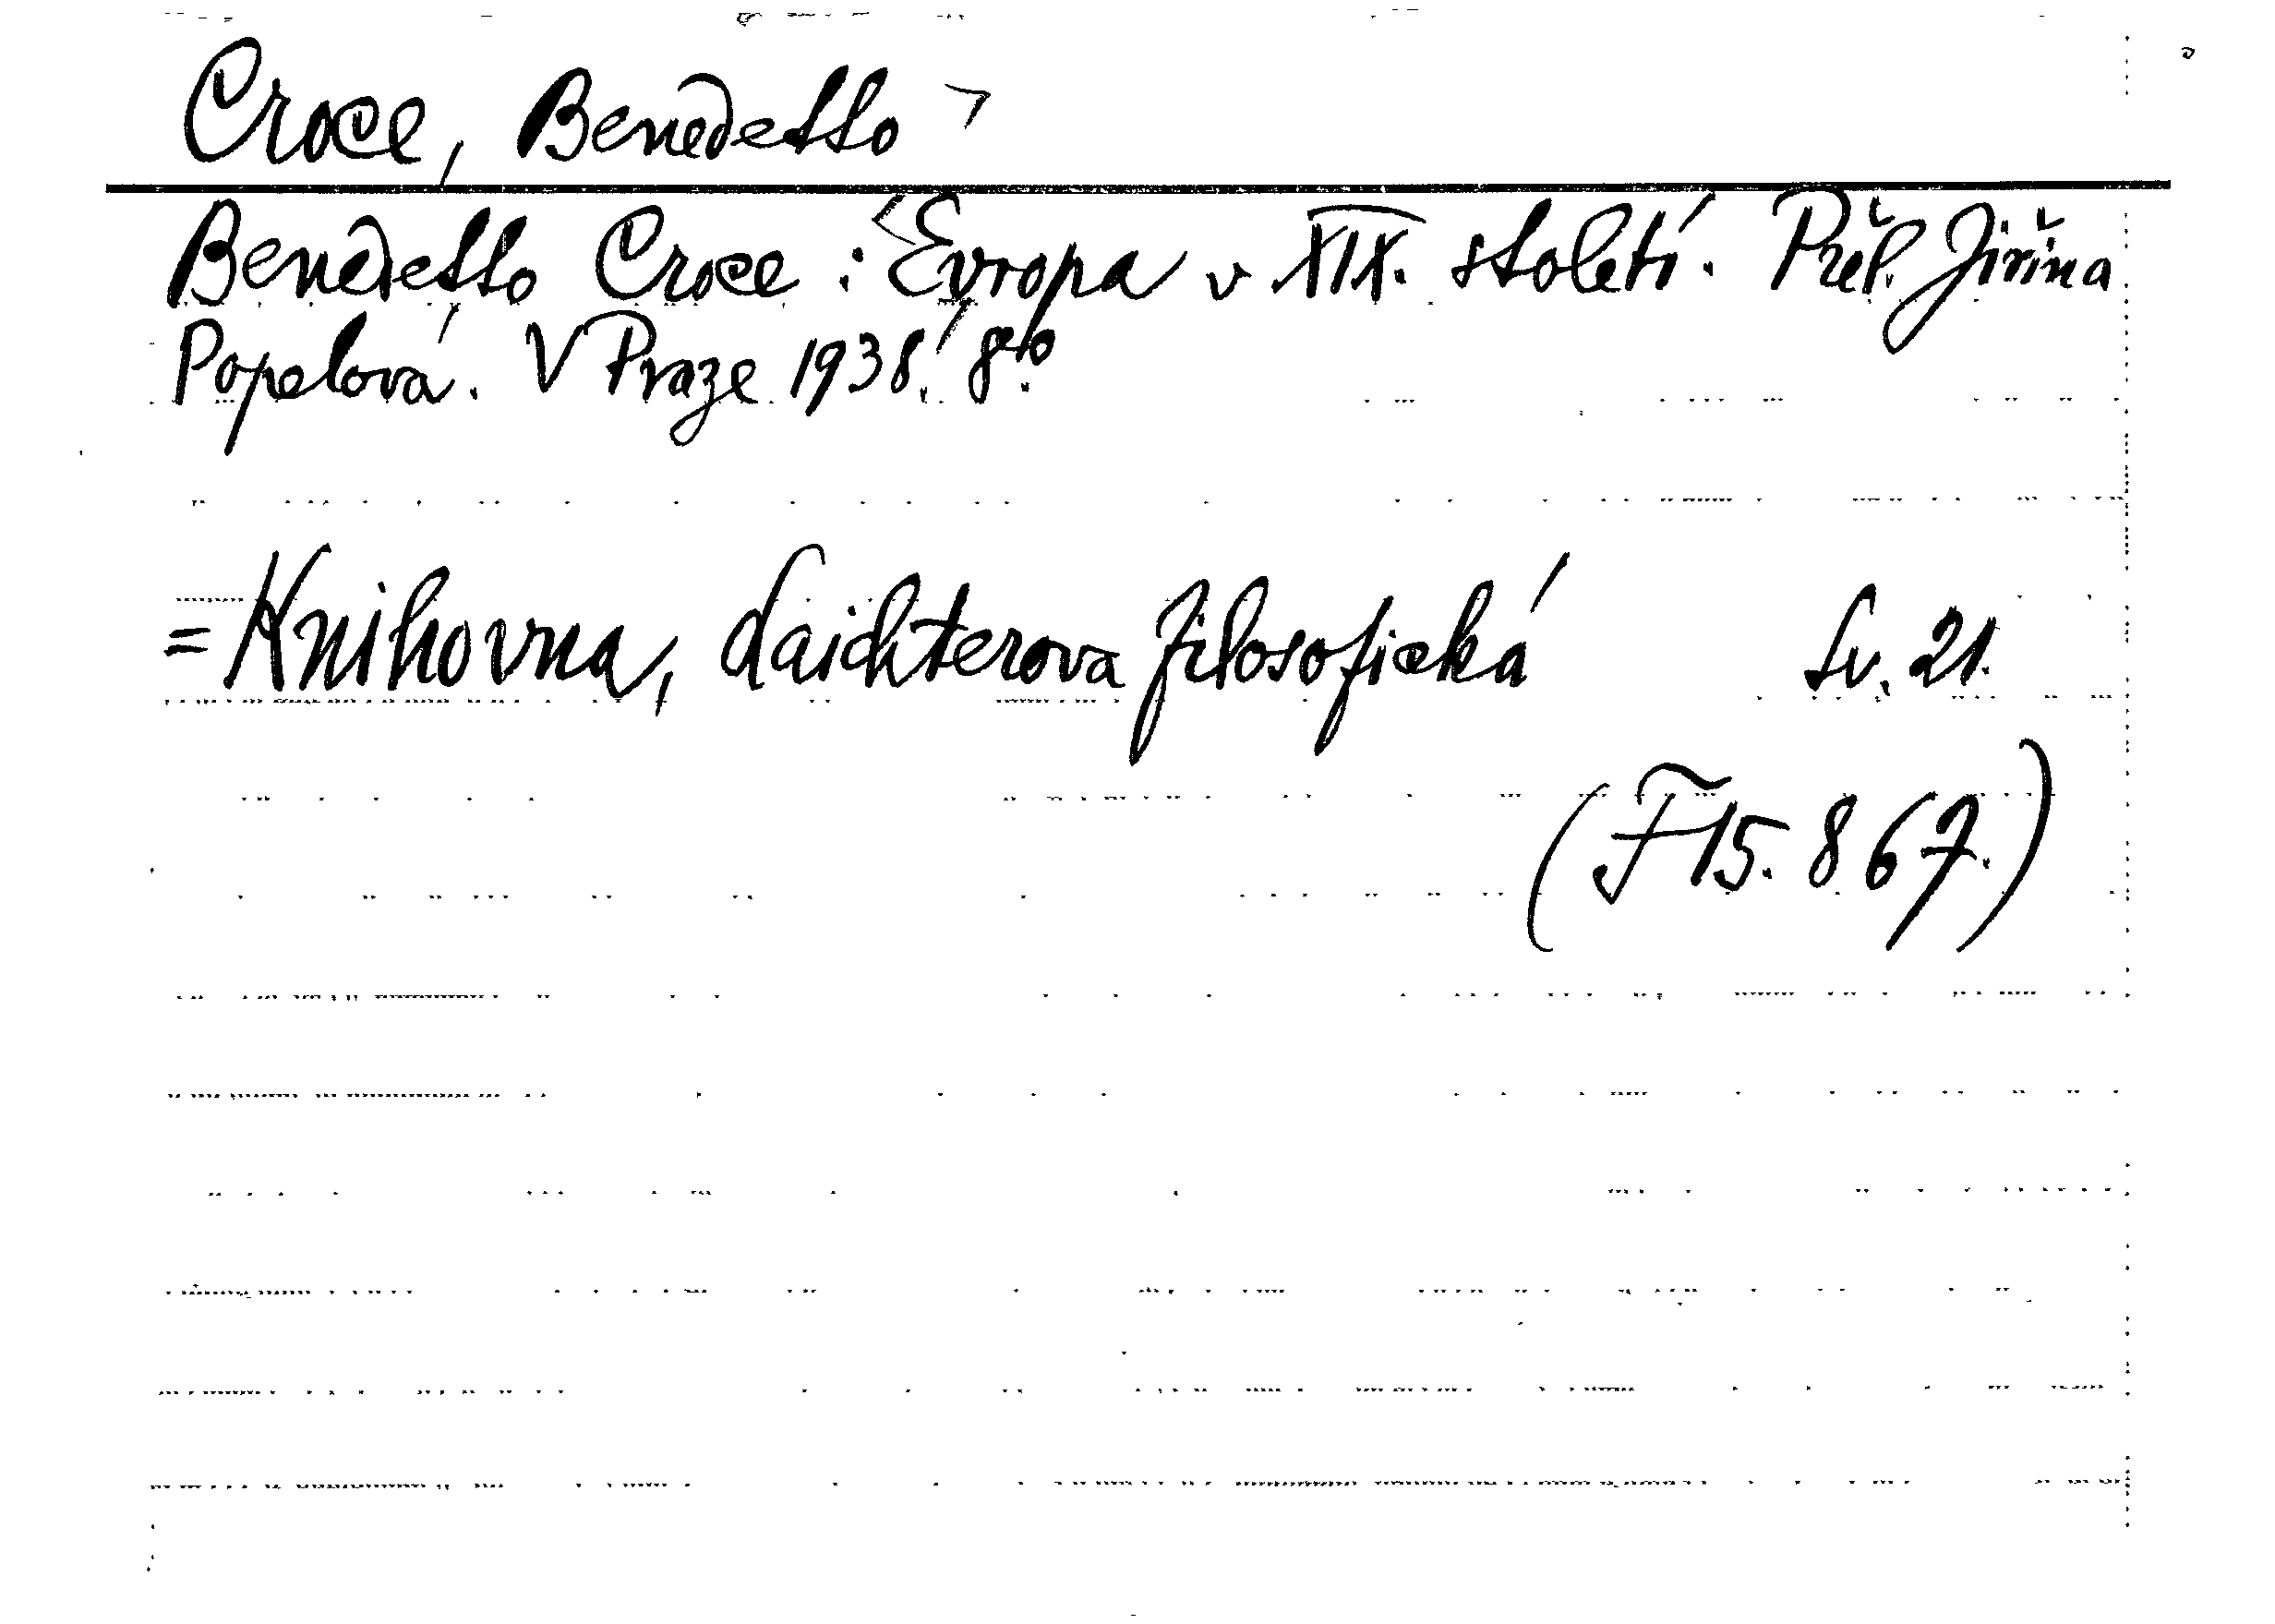 Croce, Benedetto
Benedetto Croce: Evropa v XIX. století. Přel. Jiřina
Popelová. V Praze 1938. 8°
= Knihovna, Laichterova filosofická Sv. 21.
(F 15.867.)